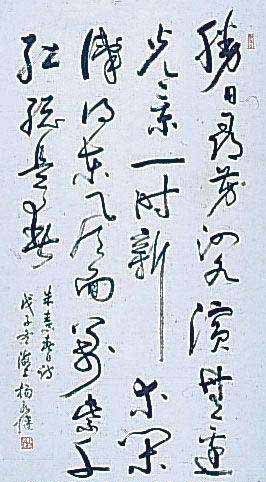 勝日尋芳泗水濱無邊
光景一时新等閒
識得東風面萬紫千
紅總是春
朱熹春日诗
戊子 杨